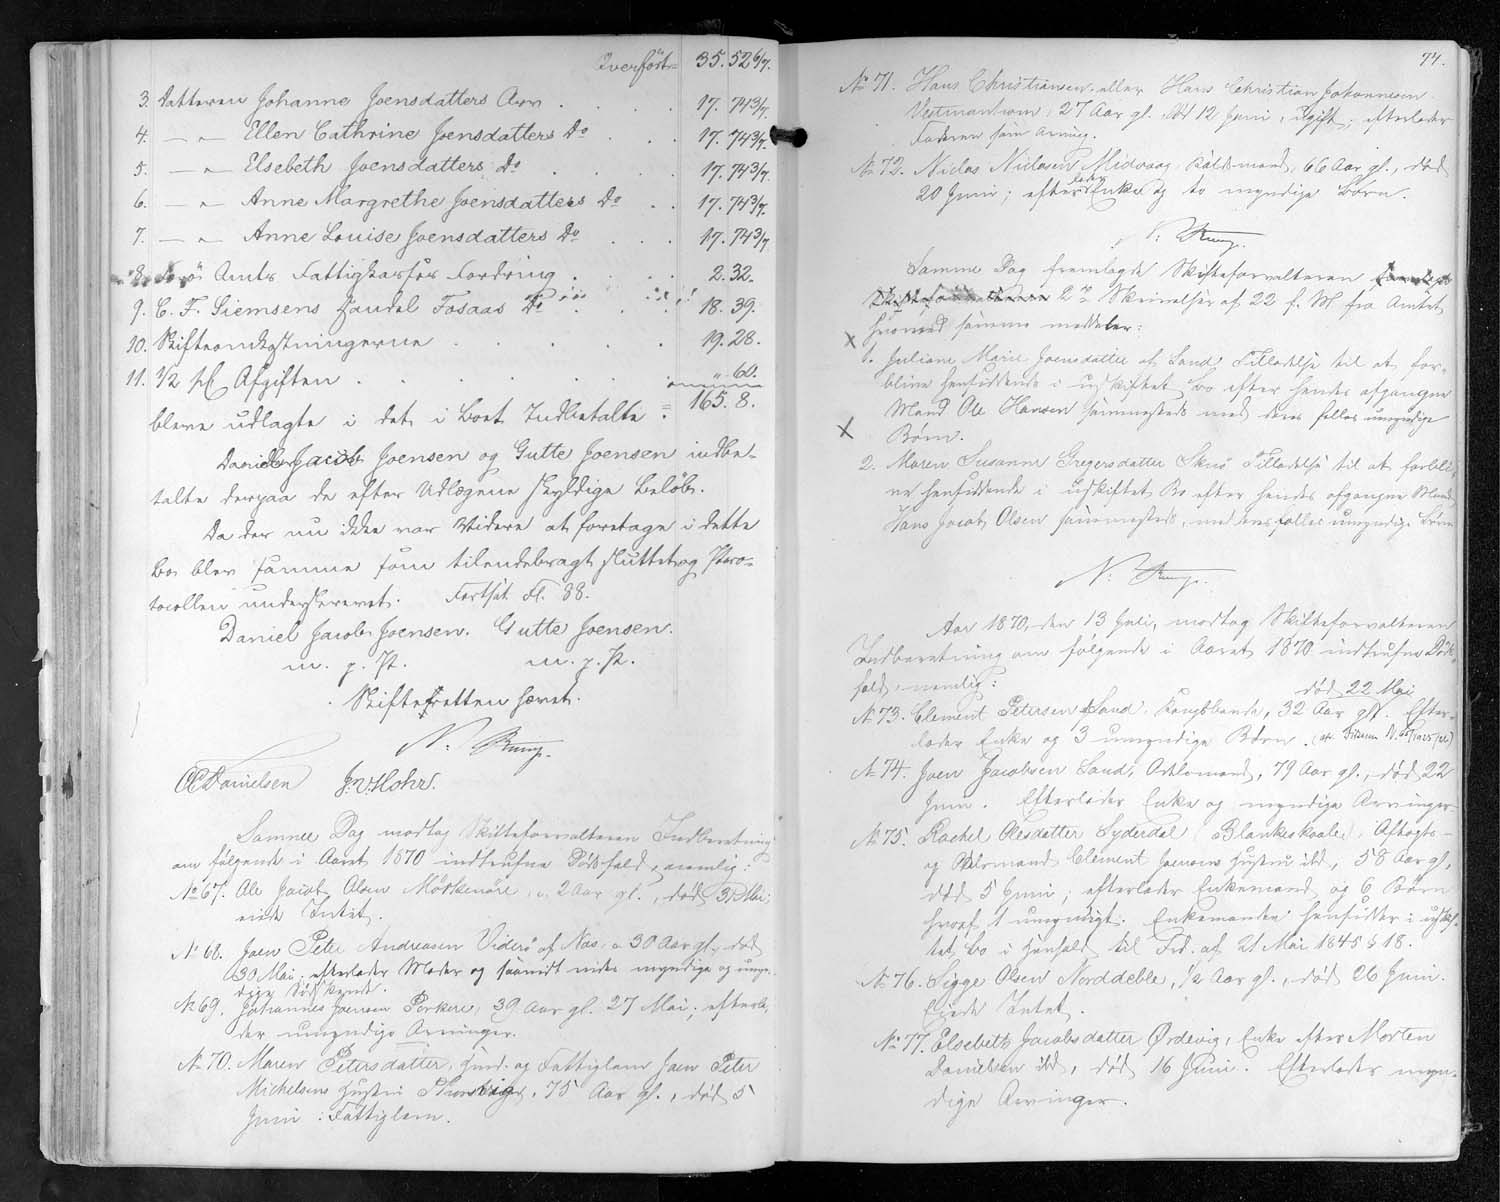 Overført 35.52 6/7.
3. Datteren Johanne Joensdatters Arv . . . 17. 74 3/7.
4. — „ — Ellen Cathrine Joensdatters Do . . 17. 74 3/7.
5. — „ — Elsebeth Joensdatters Do . . . 17. 74 3/7.
6. — „ — Anne Margrethe Joensdatters Do . . 17. 74 3/7.
7. — „ — Anne Louise Joensdatters Do . . . 17. 74 3/7
8. Færø Amts Fattigkasses Fordring . . . 2. 32.
9. C. F. Siemsens Handel Fosaas Do . . . 18. 39.
10. Skifteomkostningerne . . . . 19. 28.
11. 1/2 pCt Afgiften . . . . „ 60.
bleve udlagte i det i Boet Indbetalte = 165. 8.
Daniel Jacob Joensen og Gutte Joensen indbe-
talte derpaa de efter Udlægene skyldige Beløb.
Da der nu ikke var Videre at foretage i dette
Bo blev samme som tilendebragt sluttet og Proto-
tocollen underskrevet. Fortsat Fl. 88.
Daniel Jacob Joensen. Gutte Joensen.
m. p. P. m. p. P.
Skifteretten hævet.
N: Rump.
Danielsen J. V. Mohr.
Samme Dag modtog Skifteforvalteren Indberetning
om følgende i Aaret 1870 indtrufne Dødsfald, nemlig:
No 67. Ole Jacob Olsen Mörkenöre, 2 Aar gl., død 31 Mai;
eiede Intet.
No 68. Joen Peter Andreasen Viderö af Næs, 30 Aar gl., død
30 Mai; efterlader Moder og myndige og umyn-
dige Södskende.
No 69. Johannes Joensen Porkere, 39 Aar gl. 27 Mai; efterla-
der umyndige Arvinger.
No 70. Maren Petersdatter, Huusm. og Fattiglem Joen Peter
Michelsens Hustru, 75 Aar gl., død 5
Juni; Fattiglem.
74.
No 71. Hans Christiansen eller Hans Christian Johannesen
Vestmanhavn, 27 Aar gl., død 12 Juni, ugift; efterlader
Faderen som Arving.
No 72. Niclas Niclasen Midvaag, 66 Aar gl., død
20 Juni; efterlader Enke og to myndige Börn.
N: Rump.
Samme Dag fremlagde Skifteforvalteren
2de Skrivelser af 22 f. M. fra Amtet
hvorved samme meddeler:
X
1. Juliane Marie Joensdatter af Sand Tilladelse til at for-
blive hensiddende i uskiftet Bo efter hendes afgangne
Mand Ole Hansen sammesteds med deres fælles umyndige
X
Börn.
2. Maren Susanne Gregersdatter Skuö Tilladelse til at forbli-
ve hensiddende i uskiftet Bo efter hendes afgangne Mand
Hans Jacob Olsen sammesteds, med deres fælles umyndige Börn
N: Rump.
Aar 1870, den 13 Juli, modtog Skifteforvalteren
Indberetning om følgende i Aaret 1870 indtrufne Döds-
fald, nemlig:
død 22 Mai
No 73. Clement Petersen Sand, Kongsbonde, 32 Aar gl. Efter-
lader Enke og 3 umyndige Börn.
No 74. Joen Jacobsen Sand, Odelsmand, 79 Aar gl., død 22
Juni. Efterlader Enke og myndige Arvinger.
No 75. Rachel Olesdatter Syderdal (Blankeskaale), Aftægts-
og Odelsmand Clement Joensens Hustru ibd, 58 Aar gl,
död 5 Juni; efterlader Enkemand og 6 Börn
hvoraf 1 umyndigt. Enkemanden hensidder i uskif-
tet Bo i Henhold til Frd. af 21 Mai 1845 § 18.
No 76. Sigge Olsen Norddeble, 1/2 Aar gl., død 26 Juni.
Eiede Intet.
No 77. Elsebeth Jacobsdatter Ördevig, Enke efter Morten
Danielsen ibd, död 16 Juni. Efterlader myn-
dige Arvinger.